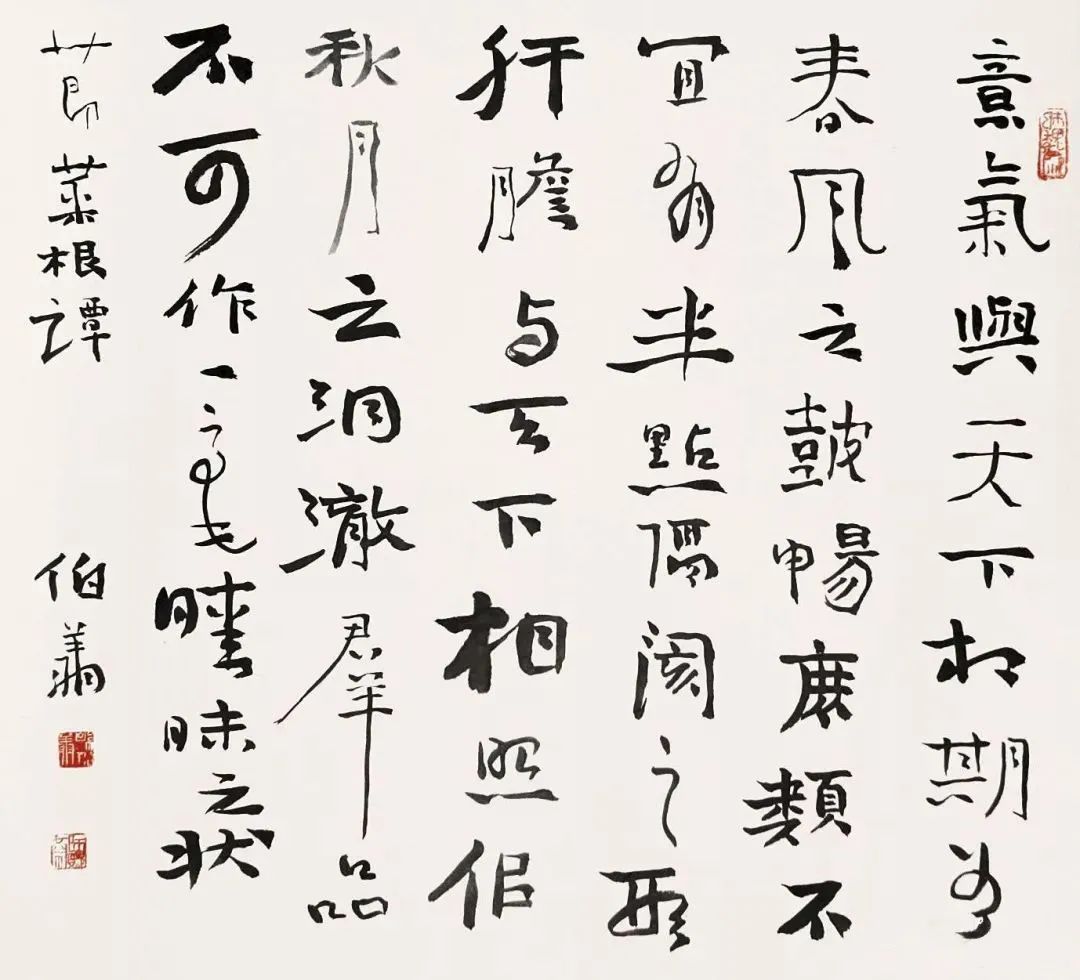 意氣與天下相期如
春風之鼓暢庶類不
宜有半點隔閡之形
肝膽与天下相照似
秋月之洞澈羣品
不可作一毫曖昧之狀
節菜根譚 伯翔